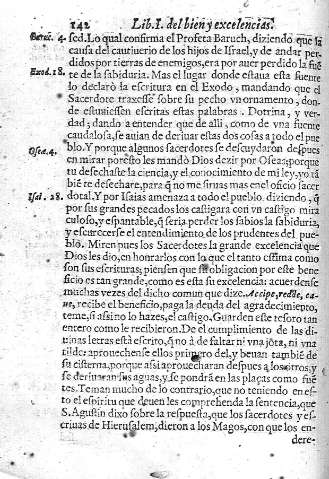 142 Lib. I. del bien y excelencias.
Baruc. 4. sed. Lo qual confirma el Profeta Baruch, diziendo que la
causa del cautiuerio de los hijos de Israel, y de andar per-
didos por tierras de enemigos, era por auer perdido la fuẽ
Exod. 28. te de la sabiduria. Mas el lugar donde estaua esta fuente
lo declarò la escritura en el Exodo, mandando que el
Sacerdote traxesse sobre su pecho vn ornamento, don-
de estuuiessen escritas estas palabras. Dotrina, y ver-
dad; dando a entender que de alli, como de vna fuente
caudalosa, se auian de deriuar estas dos cosas a todo el pue
blo. Y porque algunos sacerdotes se descuydarõ despues
Osea. 4. en mirar por esto les mandò Dios dezir por Oseas; porque
tu desechaste la ciencia, y el conocimiento de mi ley, yo tã
biẽ te desechare, para q̃ no me siruas mas en el oficio sacer
Isai. 28. dotal. Y por Isaias amenaza a todo el pueblo, diziendo, q̃
por sus grandes pecados los castigara con vn castigo mira
culoso, y espantable, q̃ seria perder los sabios la sabiduria,
y escurecerse el entendimiento de los prudentes del pue-
blo. Miren pues los Sacerdotes la grande excelencia que
Dios les dio, en honrarlos con lo que el tanto estima como
son sus escrituras; piensen que su obligacion por este bene
ficio es tan grande, como es esta su excelencia: acuerdense
muchas vezes del dicho comun que dize. Accipe, redde, ca-
ue, recibe el beneficio, paga la deuda del agradecimiẽto,
teme, si assi no lo hazes, el castigo. Guarden este tesoro tan
entero como le recibieron. De el cumplimiento de las di-
uinas letras està escrito, q̃ no à de faltar ni vna jòta, ni vna
tilde; aprouechense ellos primero del, y beuan tambiẽ de
su cisterna, porque assi aprouecharan despues a los otros, y
se deriuaran sus aguas, y se pondrà en las plaças como fuẽ
tes. Teman mucho de lo contrario, que no teniendo en es-
to el espiritu que deuen les comprehenda la sentencia, que
S. Agustin dixo sobre la respuesta, que los sacerdotes y es-
criuas de Hierusalem, dieron a los Magos, con que los en-
dere-